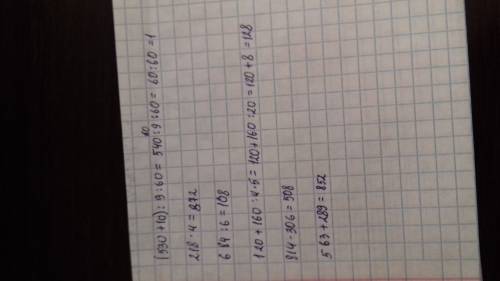 (530+10):9:60=540:9:60=60:60=1
218·4=872
684:6=108
120+160:4·5=120+160:20=120+8=128
814-306=508
563+289=852